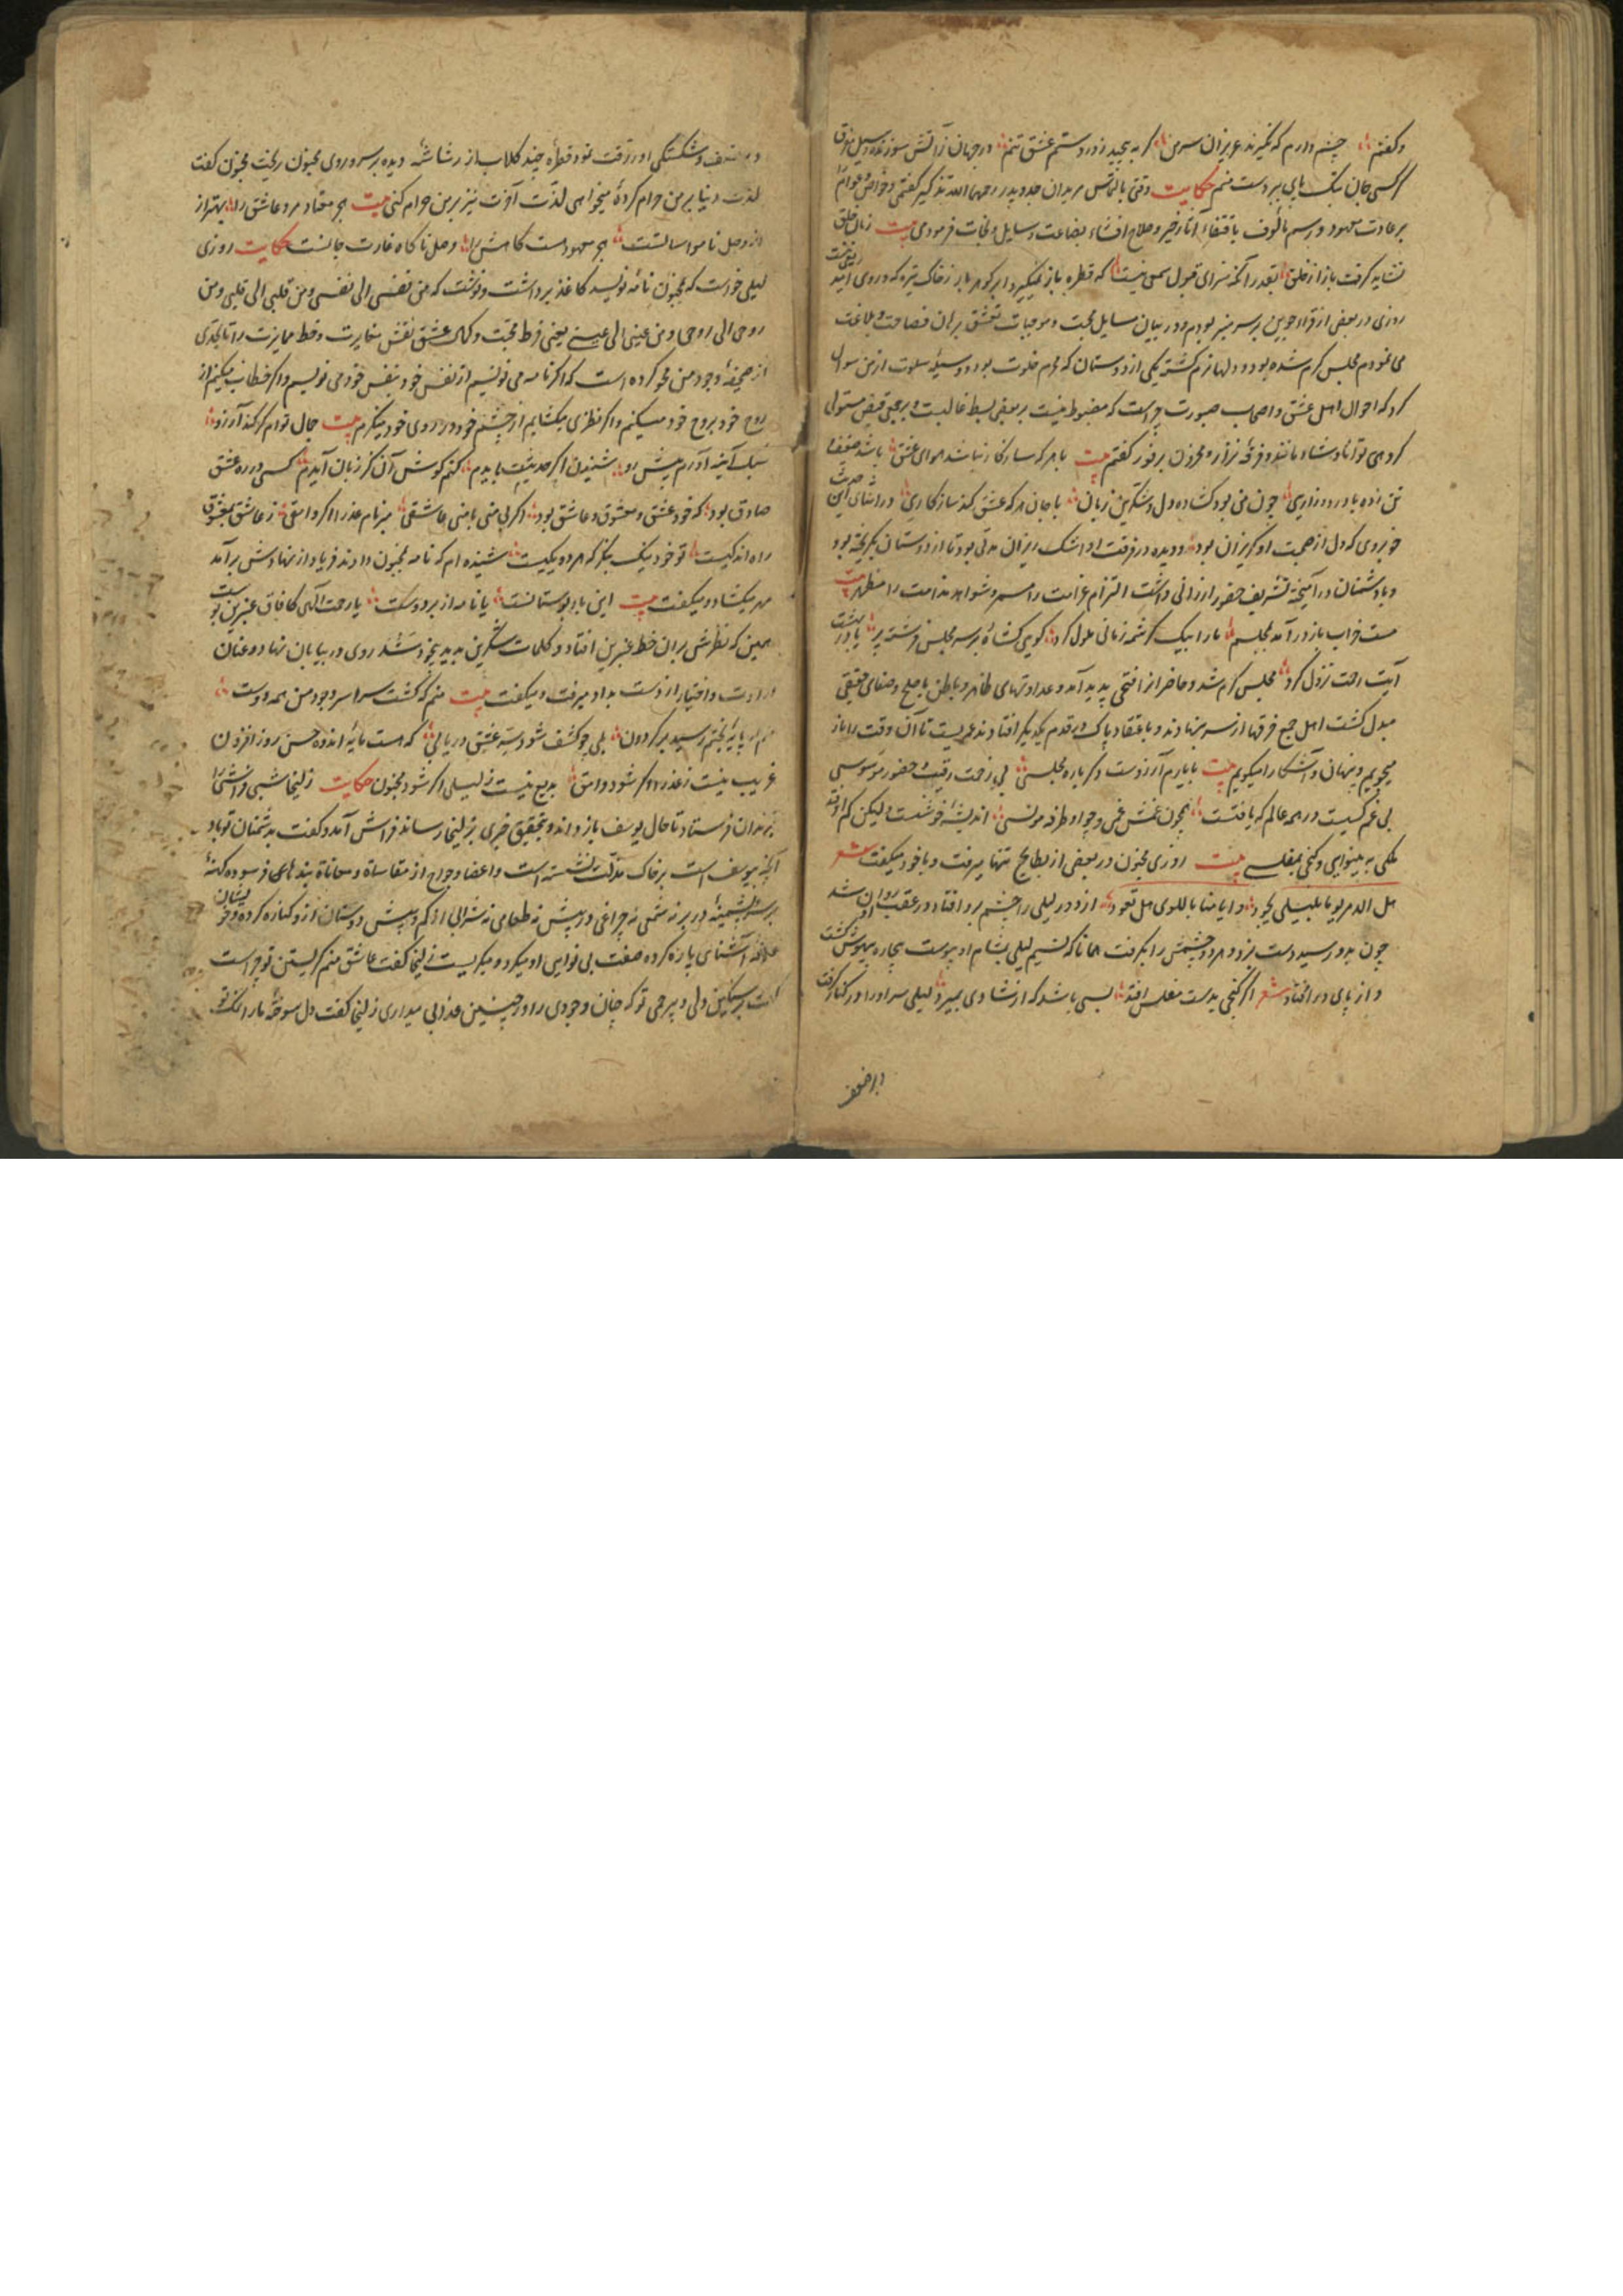 و کفتم چشم دارم که نکیرند عزیزان سر من کر به بحید زدر دستم عشق تنم در جهان زآتش سوزنده
کر کسی جان بیک پای بر دست منم حکایت وقتی بالتماس مریدان جد و پدر رحمهما الله تذکیر کفتمی و خواص و عوام را
بر عادت معهود و رسم مألوف باقتفاء آثار خیر و صلاح افشاء بضاعت وسایل و نجات فرمودمی بیت زبان خلق
نشاید کرفت باز از خلق بقدر آنکه سزای قبول سمعی نیست که قطره باز نمیکیرد ابر کوهربار ز خاک تیره که در وی امید
روزی در بعضی از قراء جوین بر سر منبر بودم و در بیان مسایل محبت و موجبات تعشق بران فصاحت و بلاغت
می نمودم مجلس کرم شده بود و دلها نرم کشته یکی از دوستان که محرم خلوت بود و وسیله سلوت از من سوال
کرد که احوال اهل عشق و اصحاب صبورت چراست که مضبوط نیست بر بعضی بسط غالبست و بر بعضی قبض مستولی
کروهی توانا و شادمانند و فرقه نزار و محزون بر فور کفتم بیت با هر که سازکار نباشد هوای عشق باشد ضعف
تن زده با درد و زاری چون منی بود کشاده دل و شکرین زبان با جان هر که عشق کند سازکاری در اثنای این حدیث
خوبروی که دل از محبت او کریزان بود و دیده در فرقت او اشک ریزان مدتی بود تا از دوستان بکریخته بود
و با دشمنان در آمیخته تشریف حضور ارزانی داشت التزام غرامت را مستمر و شواهد ندامت را مظهر بیت
مست خراب باز در آمد بمجلسم ما را بیک کرشمه زمانی ملول کرد کویی کشاد بر سر مجلس فرشته پر یا در بهشت
آیت رحمت نزول کرد مجلس کرم شد و حاضرانرا فتحی پدید آمد و عداوتهای ظاهر و باطن با صلح و صفای حقیقی
مبدل کشت اهل جمع فرقها از سر بنهادند و باعتقاد پاک در قدم یکدیکر افتادند عمریست تا آن وقت را باز
میجویم و پنهان و آشکارا میکویم بیت با یارم آرزوست دکرباره مجلسی بی زحمت رقیب و حضور موسوسی
بی غم کسیست در همه عالم که یافتست همچون غمش غمی و چو او طرفه مونسی اندیشهٔ خوشست ولیکن کم اوفتد
ملکی به بینوایی و کنجی بمفلسی بیت روزی مجنون در بعضی از بطایح تنها میرفت و با خود میکفت شعر
هل الدهر یوما بلیلی یجود و ایامنا باللوی هل تعود از دور لیلی را چشم برو افتاد در عقب او روان شد
چون بدو رسید دست بزد و هر دو چشمش را بکرفت همانا که نسیم لیلی بمشام او پیوست بیچاره بیهوش کشت
و از پای در افتاد شعر اکر کنجی بدست مفلس افتد بسی باشد که از شادی بمیرد لیلی سر او را در کنار کرفت
و شکستکی او رقت نمود قطرهٔ چند کلاب از رشاشهٔ دیده بر سر و روی مجنون ریخت مجنون کفت
لذت دنیا بر من حرام کردهٔ میخواهی لذت آخرت نیز بر من حرام کنی بیت هجر معتاد مرد عاشق را بهتر از
از وصل نامواساتست هجر معهودست کاهش را وصل ناکاه غارت جانست حکایت روزی
لیلی خواست که بمجنون نامه نویسد کاغذ برداشت و نوشت که من نفسی الی نفسی و من قلبی الی قلبی و من
روحی الی روحی و من عینی الی عینی یعنی فرط محبت و کمال عشق نقش مغایرت و خط ممایزت را تا بحدی
از صحیفهٔ وجود من محو کرده است که اکر نامه می نویسم از نفس خود بنفس خود می نویسم و اکر خطاب میکنم از
روح خود بروح خود میکنم و اکر نظری میکشایم از چشم خود در روی خود مینکرم بیت جمال توام کر کند آرزو
سبک آینه آورم پیش رو شنیدن اکر حدیثت بایدم کنم کوش آن کز زبان آیدم کسی در ره عشق
صادق بود که خود عشق و معشوق و عاشق بود اکر بی منی با منی عاشقی مبر نام عذرا اکر وامقی ز عاشق بمعشوق
راه اندکیست تو خود نیک بنکر که هر دو یکیست شنیده ام که نامه بمجنون دادند فریاد از نهادش بر آمد
مهر میکشاد و میکفت بیت این بار بوستانست یا نامه از بر دوست یا رحمت الهی کافاق عنبرین بوست
همین که نظرش بران خط عنبرین افتاد و کلمات شکرین بدید بیخود شد روی در بیابان نهاد و عنان
ارادت و اختیار از دست بداد میرفت و میکفت بیت منم که کشت سراسر وجود من همه دوست
منم که پایهٔ بختم رسید بر کردون بلی چو کشف شود سر عشق دریابی که هست مایهٔ اندوه حسن روز افزون
غریب نیست ز عذرا اکر شود وامق بدیع نیست ز لیلی اکر شود مجنون حکایت زلیخا شبی فراشی را
بزندان فرستاد تا حال یوسف باز داند و بتحقیق خبری بزلیخا رساند فراش آمد و کفت بدشمنان تو باد
آنچه بیوسف است بر خاک مذلت نشسته است و اعضا و جوارح از مقاسات و معانات بندهای فرسوده کهنه
بر سر پشمینهٔ در بر نه شمعی نه چراغی در پیش نه طعامی نه شرابی از کم و بیش دوستان ازو کناره کرده و خویشان
علاقه آشنایی پاره کرده صفت بی نوایی او میکرد و میکریست زلیخا کفت عاشق منم کریستن تو چراست
کفت سنکین دلی و بیرحمی تو که چنان وجودی را در چنین عذابی میداری زلیخا کفت دل سوخته ما را